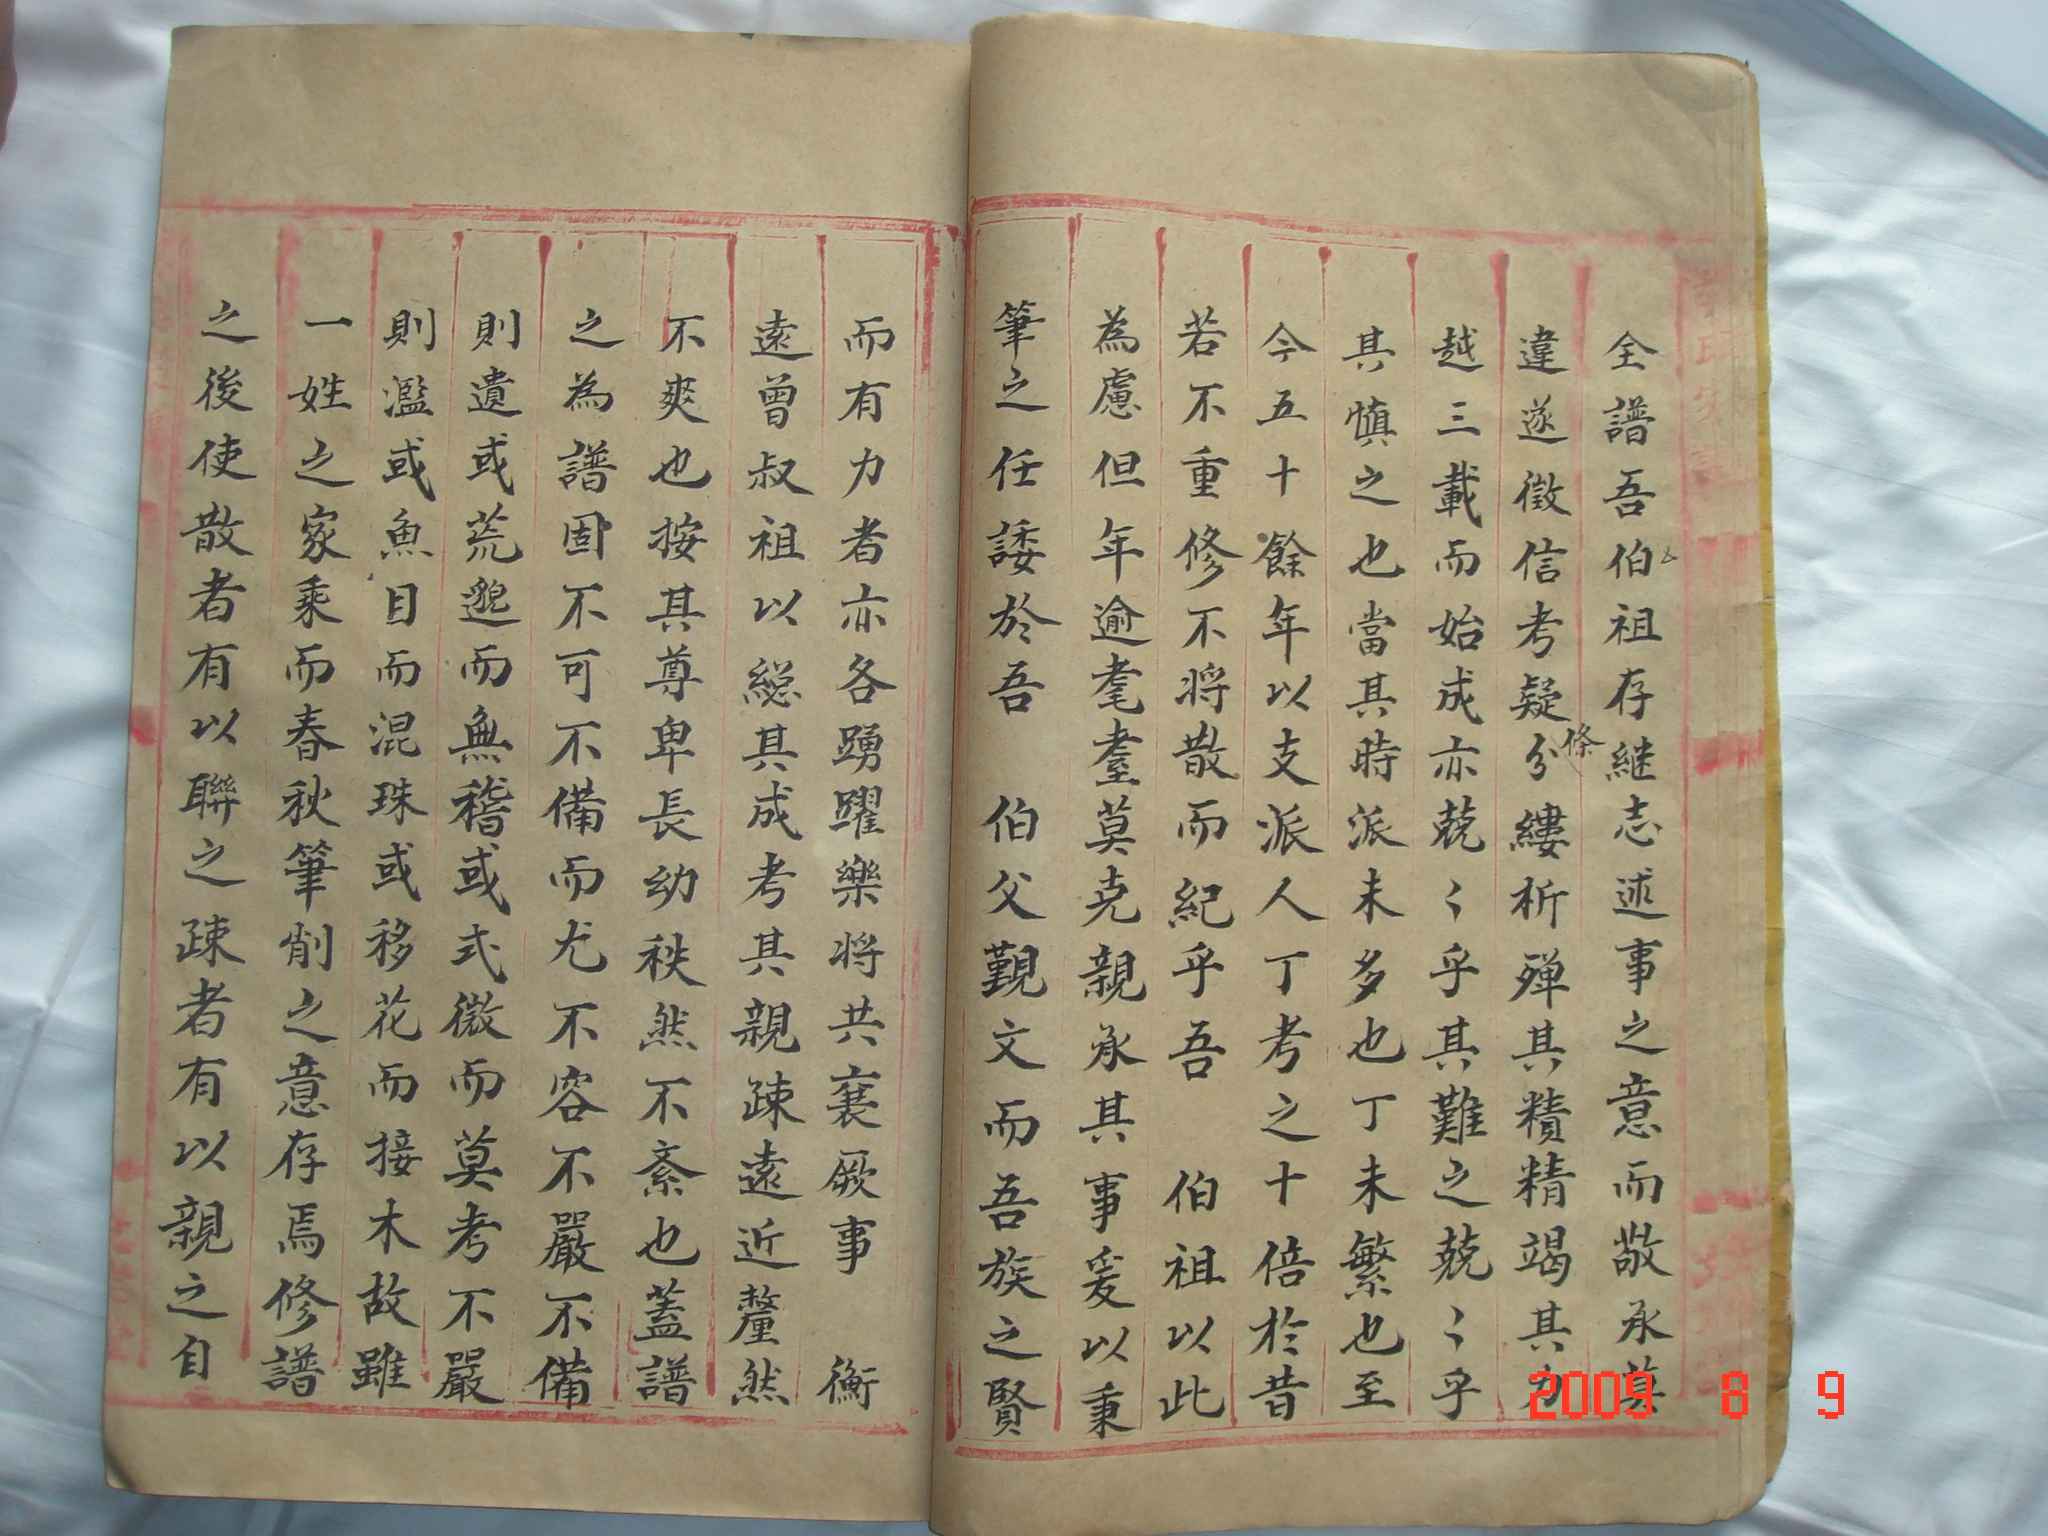 全譜吾伯祖存継志述事之意而敬承莫
違遂徵信考疑分條縷析殫其積精竭其力
越三載而始成亦兢〻乎其難之兢〻乎
其慎之也當其時派未多也丁未繁也至
今五十餘年以支派人丁考之十倍於昔
若不重修不將散而紀乎吾 伯祖以此
為慮但年逾耄耋莫克親承其事爰以秉
筆之任諉於吾 伯父觀文而吾族之賢
而有力者亦各踴躍樂將共襄厥事 衡
遠曾叔祖以總其成考其親疎遠近釐然
不爽也按其尊卑長幼秩然不紊也蓋譜
之為譜固不可不備而尤不容不嚴不備
則遺或荒邈而無稽或式微而莫考不嚴
則濫或魚目而混珠或移花而接木故雖
一姓之家乘而春秋筆削之意存焉修譜
之後使散者有以聯之疎者有以親之自
2009 8 9